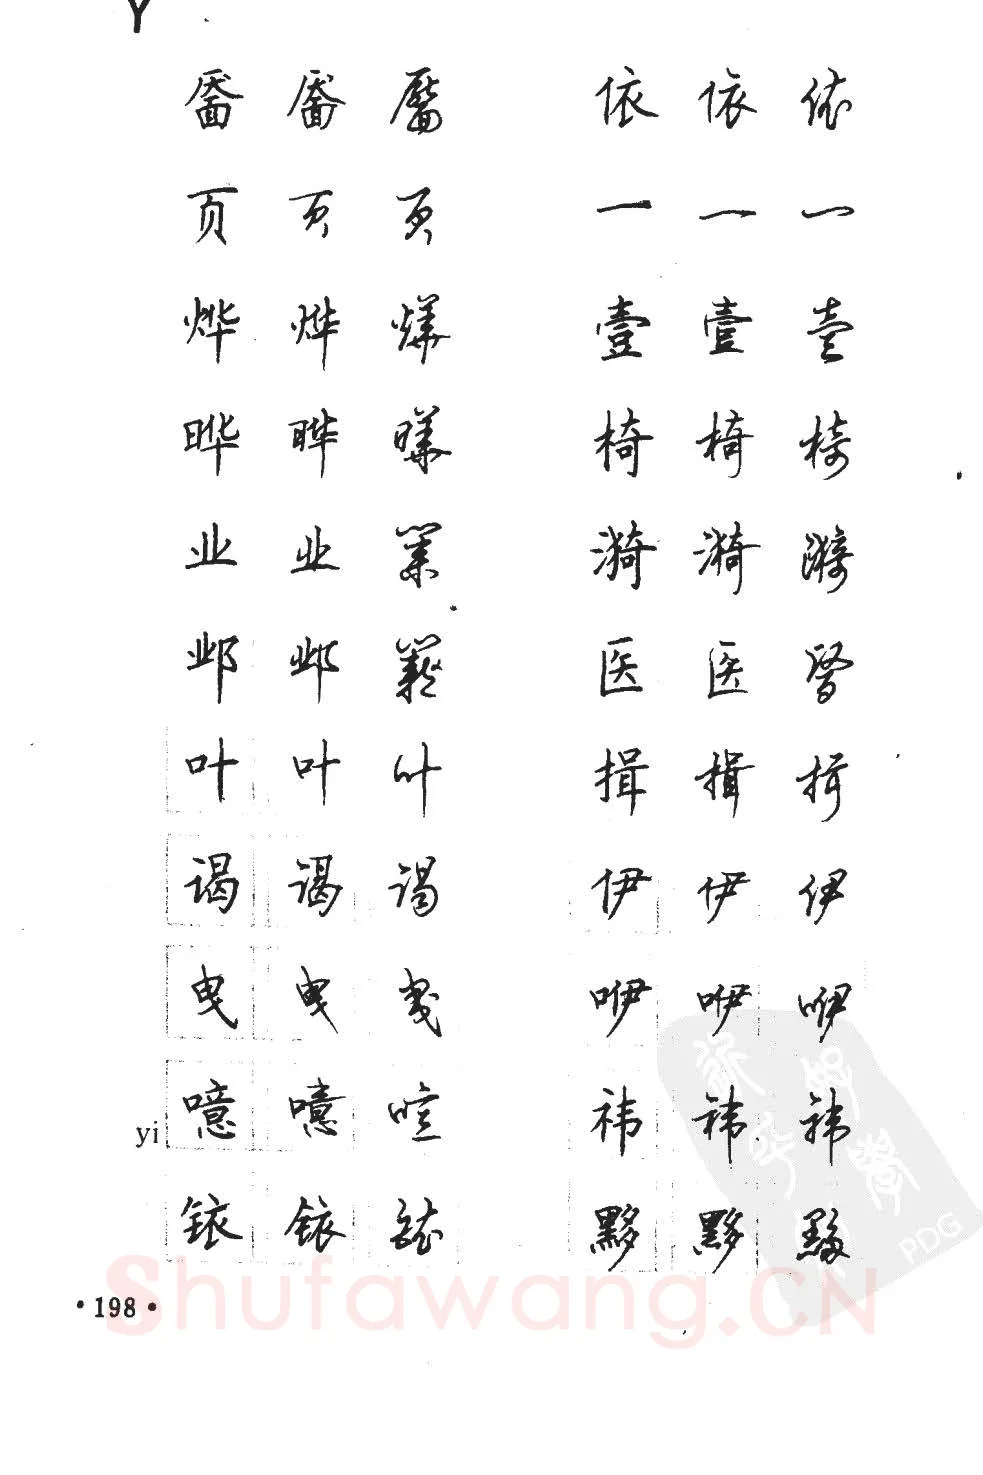 Y
靥 靥 靨 依 依 依
页 页 页 一 一 一
烨 烨 燁 壹 壹 壹
晔 晔 曄 椅 椅 椅
业 业 業 漪 漪 漪
邺 邺 医 医 醫
叶 叶 叶 揖 揖 揖
谒 谒 谒 伊 伊 伊
曳 曳 曳 咿 咿 咿
yi 噫 噫 噫 祎 祎 祎
铱 铱 铱 黟 黟 黟
·198·
Shufawang.CN
PDG